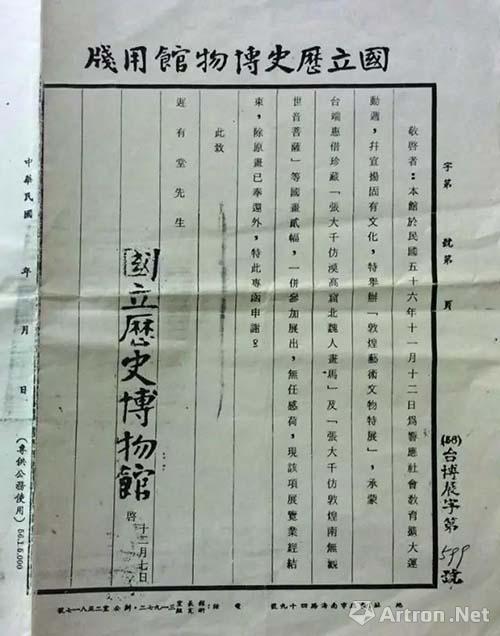 國立歷史博物館用牋
字第 號第 頁
(56)台博展字第599號
敬啓者:本館於民國五十六年十一月十二日為響應社會教育擴大運
動週,幷宣揚固有文化,特舉辦「敦煌藝術文物特展」,承蒙
台端惠借珍藏「張大千仿漠高窟北魏人畫馬」及「張大千仿敦煌南無觀
世音菩薩」等國畫貳幅,一併參加展出,無任感荷,現該項展覽業經結
束,除原畫已奉還外,特此專函申謝。
此致
遲有堂先生
國立歷史博物館 啓
十二月七日
中華民國 年 月 日
(專供公務使用) 56.1.5.000
市南海路四十九號
Artron.Net